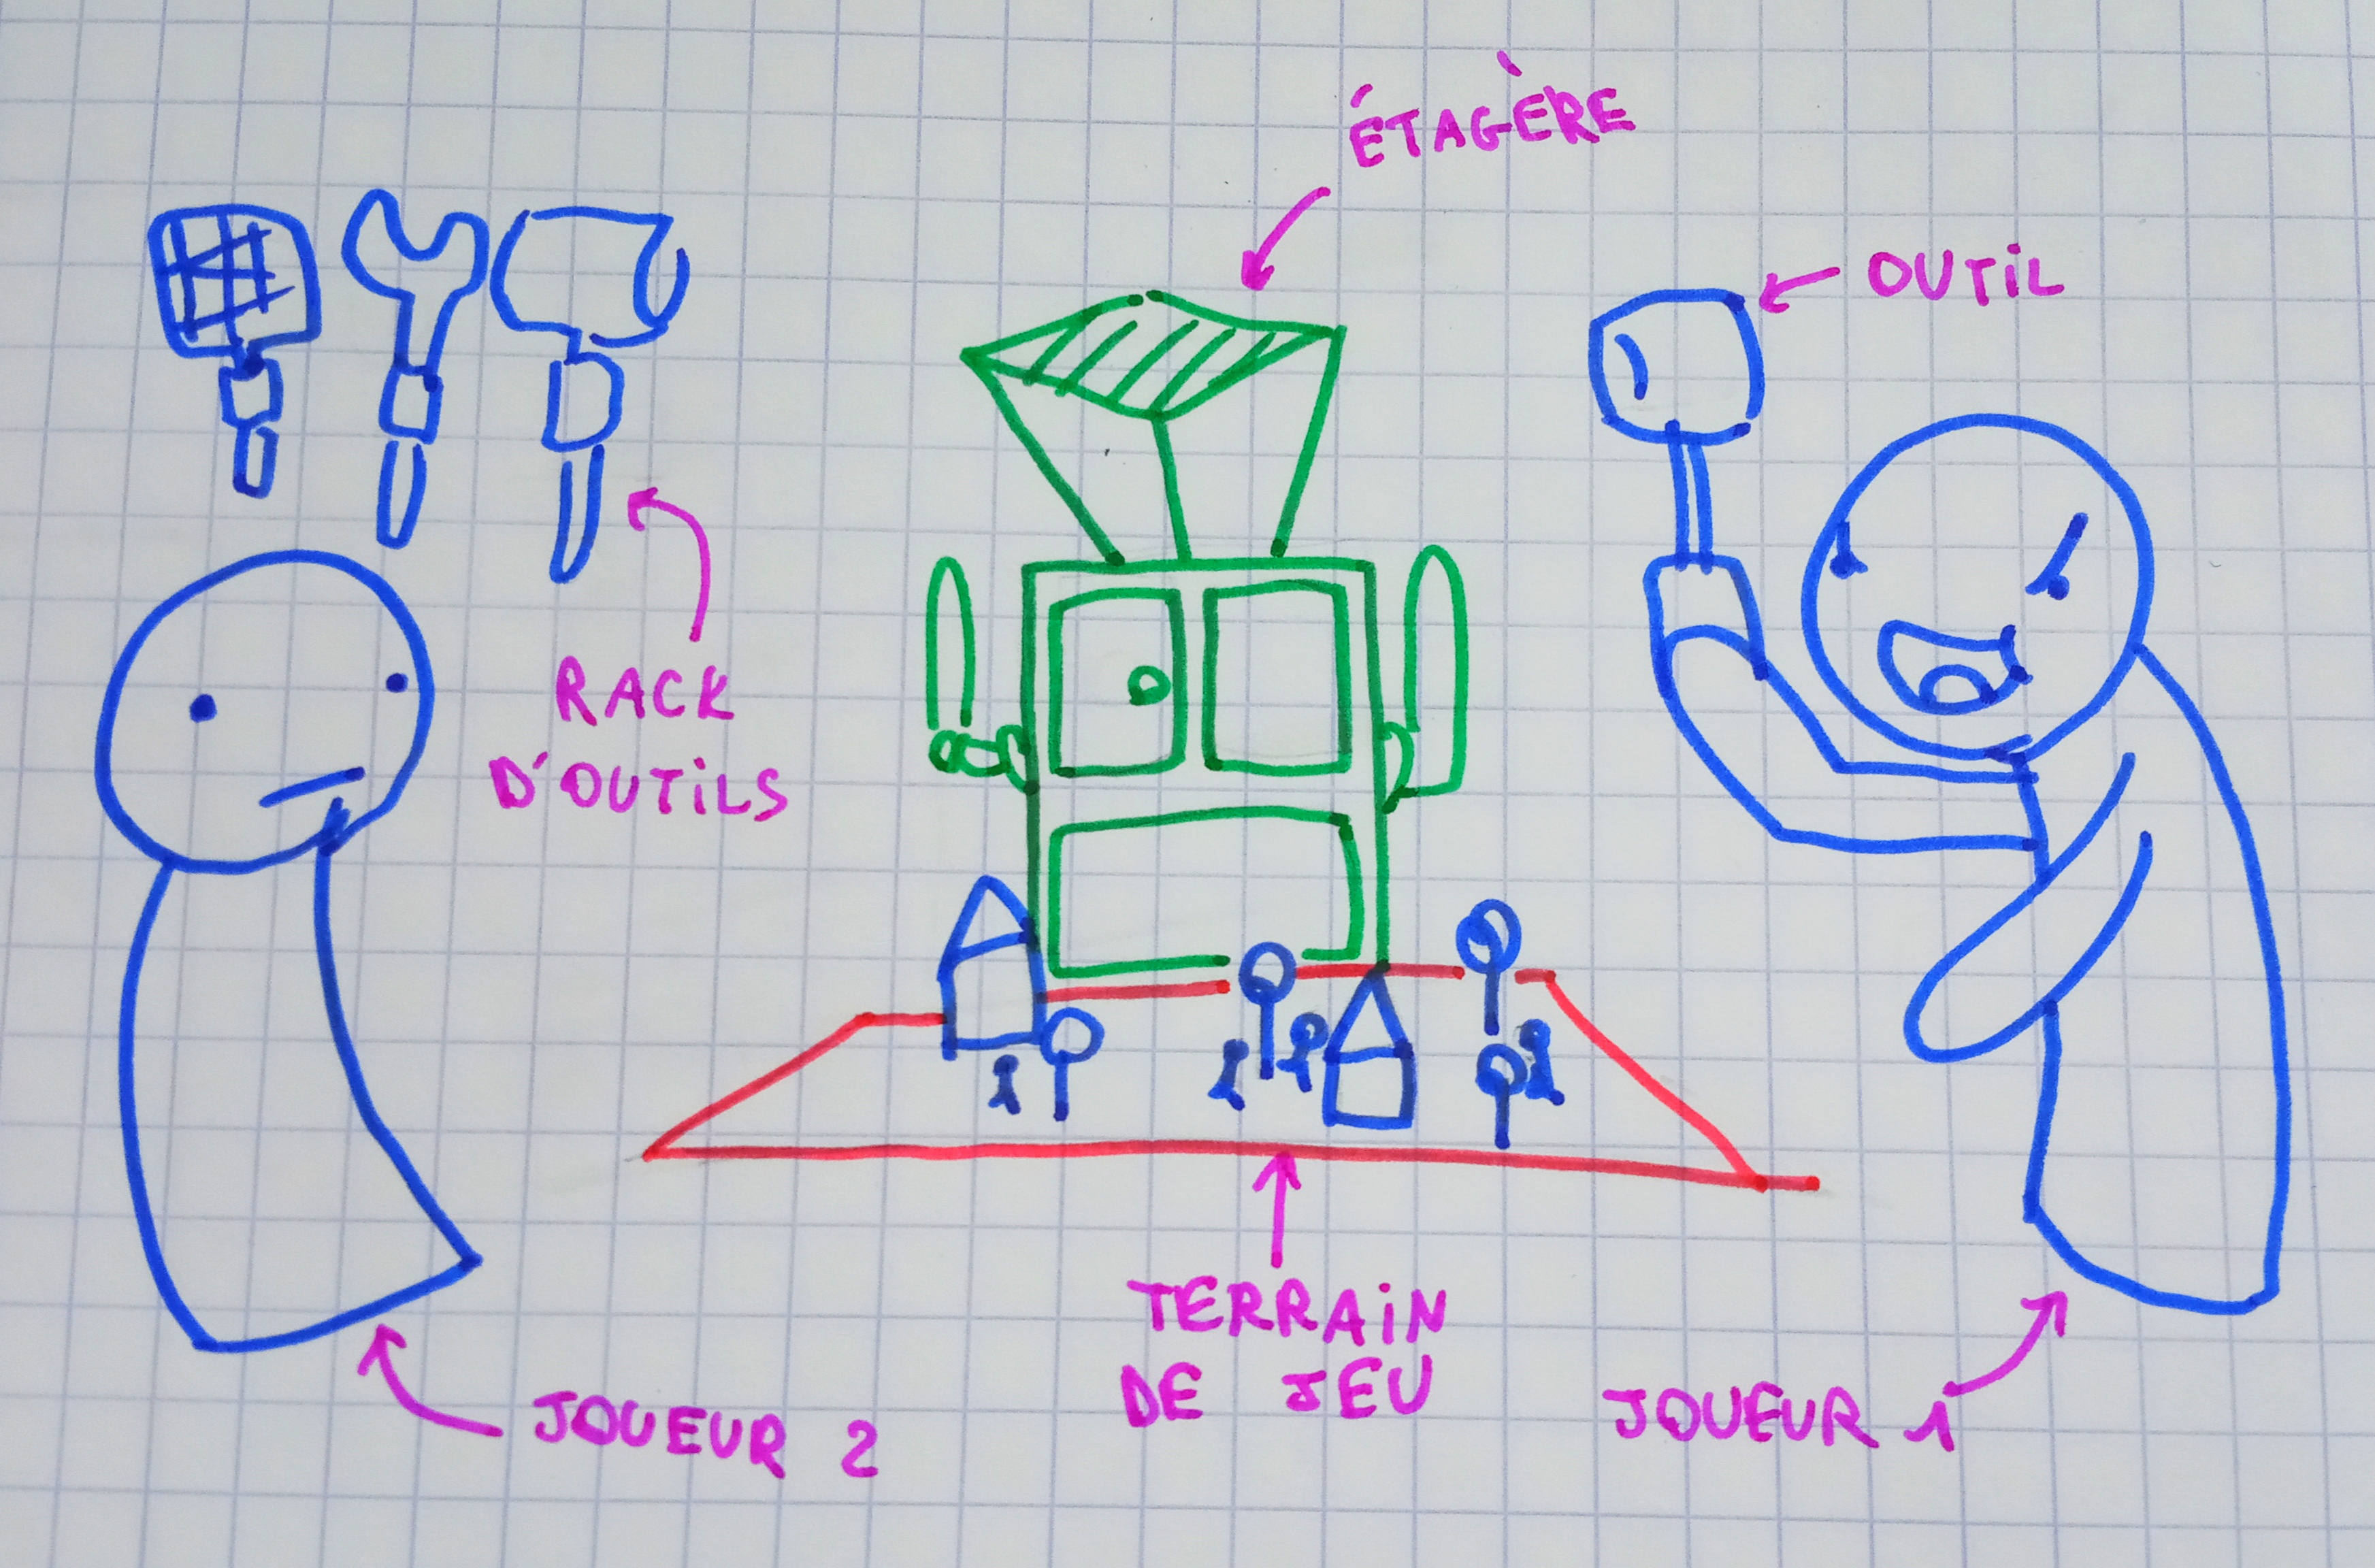 ÉTAGÈRE
OUTiL
RACK
D'OUTiLS
TERRAiN
DE JEU
JOUEUR 2
JOUEUR 1